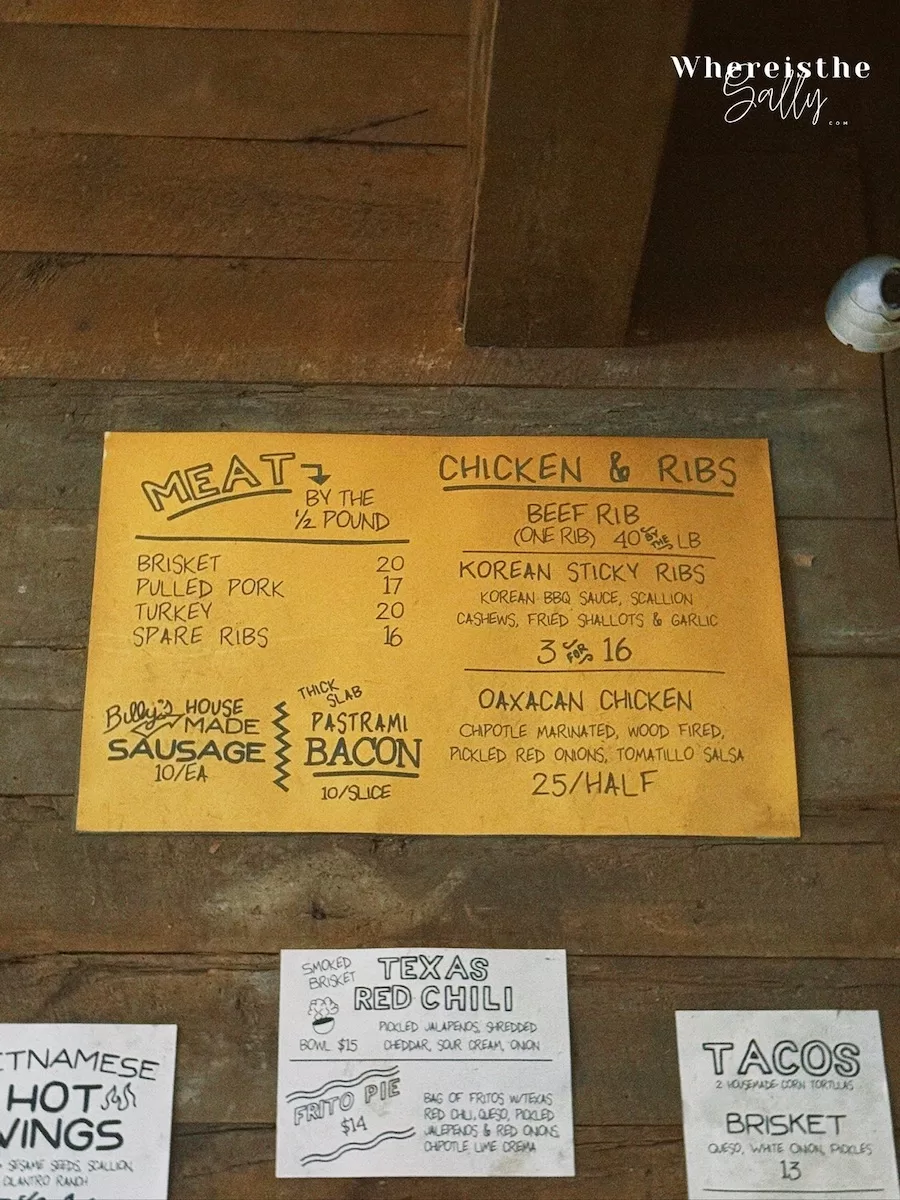 Whereisthe
Sally
.COM
MEAT
BY THE
1/2 POUND
BRISKET 20
PULLED PORK 17
TURKEY 20
SPARE RIBS 16
Billy's HOUSE
MADE
SAUSAGE
10/EA
THICK
SLAB
PASTRAMI
BACON
10/SLICE
CHICKEN & RIBS
BEEF RIB
(ONE RIB) 40 BY THE LB
KOREAN STICKY RIBS
KOREAN BBQ SAUCE, SCALLION
CASHEWS, FRIED SHALLOTS & GARLIC
3 FOR 16
OAXACAN CHICKEN
CHIPOTLE MARINATED, WOOD FIRED,
PICKLED RED ONIONS, TOMATILLO SALSA
25/HALF
ETNAMESE
HOT
WINGS
SESAME SEEDS, SCALLION
CILANTRO RANCH
SMOKED
BRISKET
TEXAS
RED CHILI
BOWL $15
PICKLED JALAPENOS, SHREDDED
CHEDDAR, SOUR CREAM, ONION
FRITO PIE
$14
BAG OF FRITOS W/TEXAS
RED CHILI, QUESO, PICKLED
JALEPENOS & RED ONIONS
CHIPOTLE LIME CREMA
TACOS
2 HOUSEMADE CORN TORTILLAS
BRISKET
QUESO, WHITE ONION, PICKLES
13